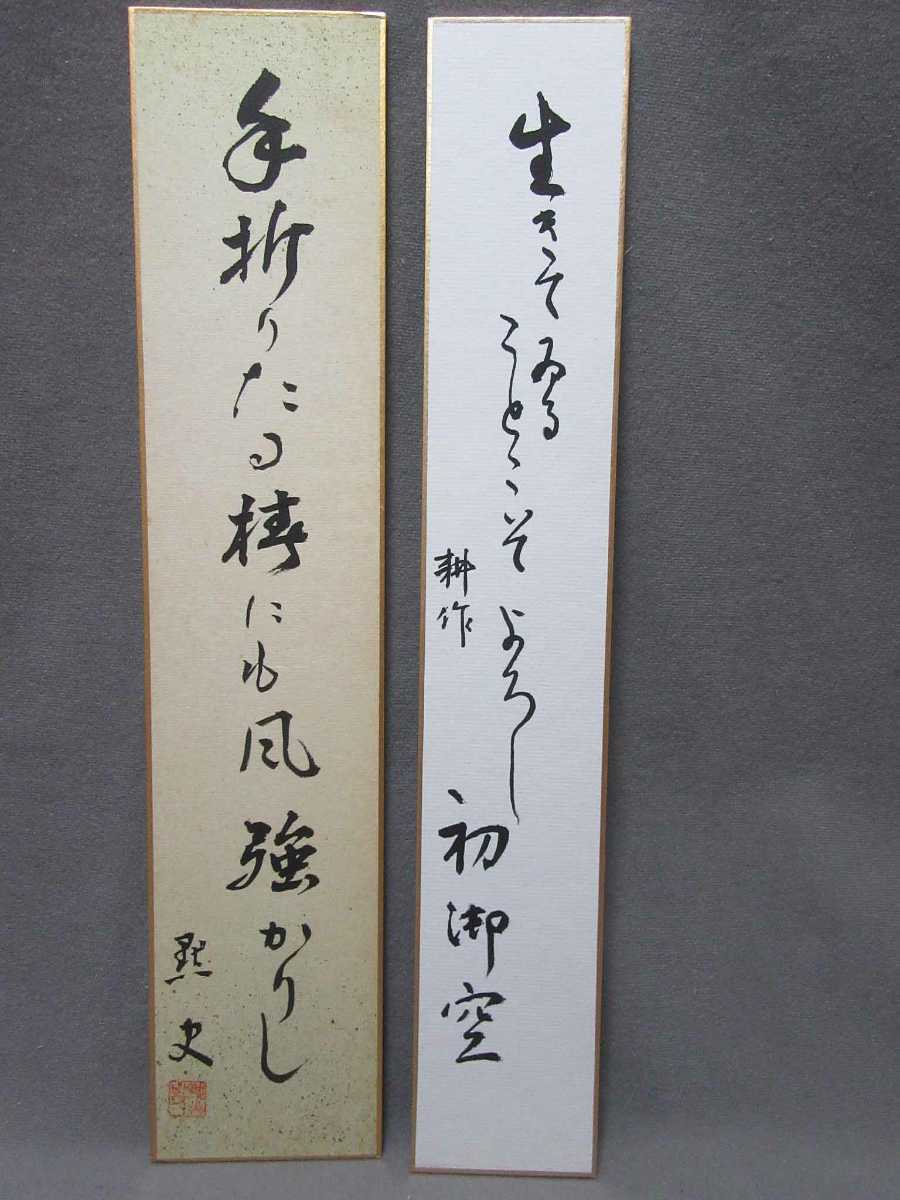 生きてゐる
ことこそよろし
初御空
耕作
手折りたる椿にも風強かりし
黙史